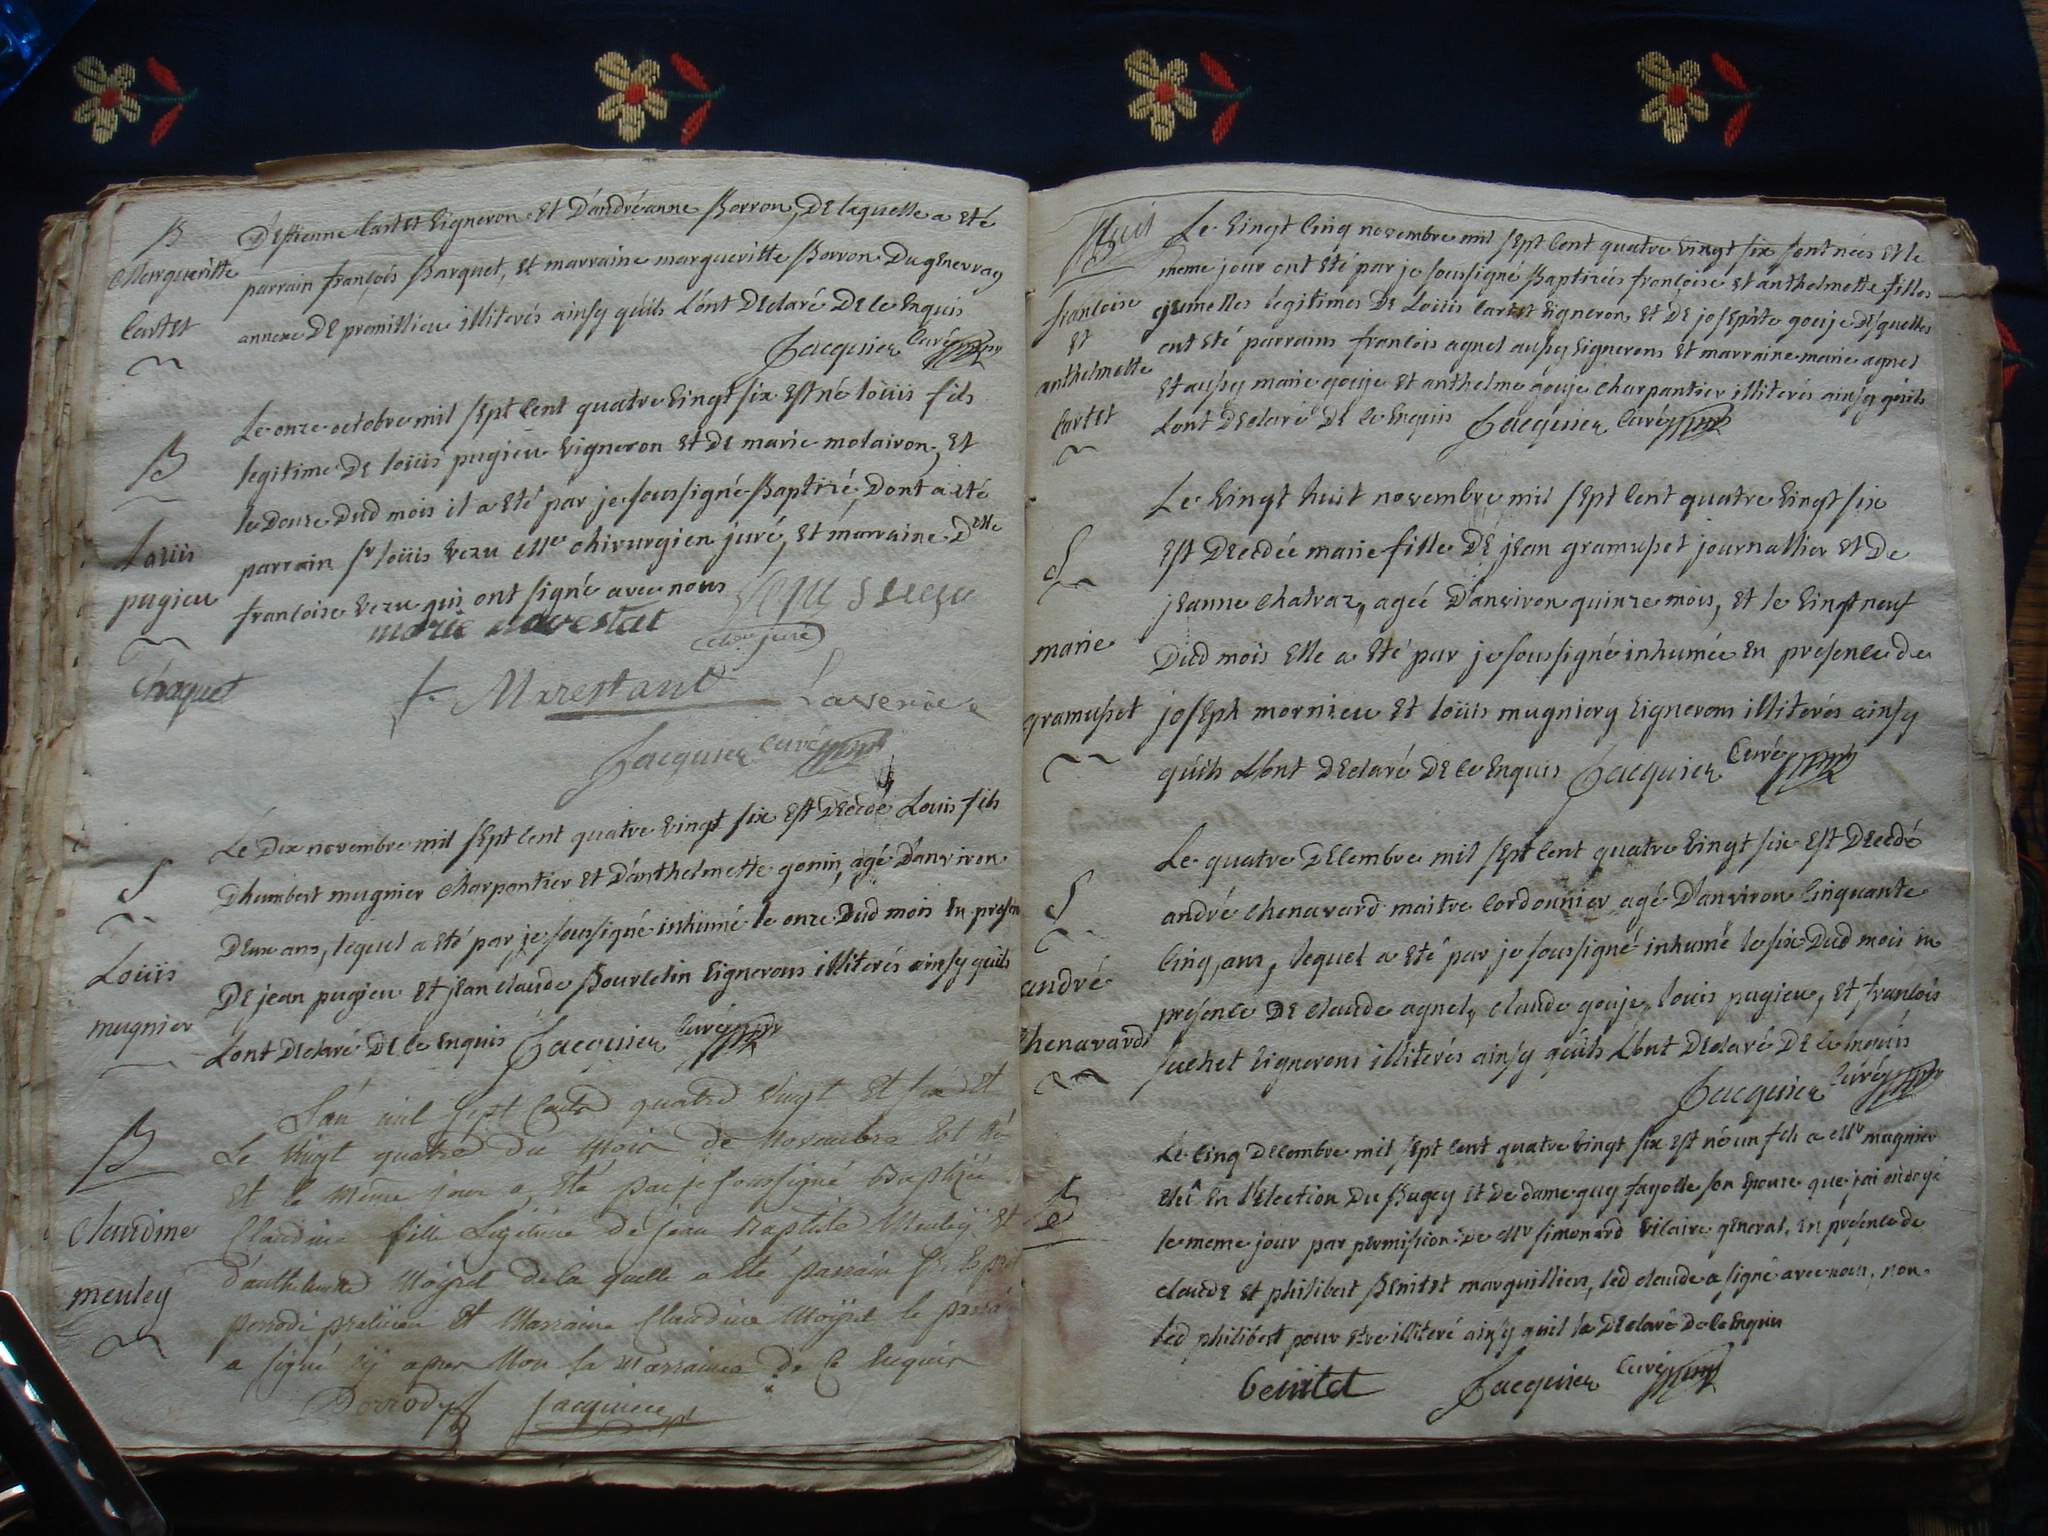 B
Margueritte
Cartet
D'Estienne Cartet vigneron et d'andréanne Borron, de laquelle a eté
parrain françois Barquet, et marraine margueritte Borron du genevray
annexe de premillieu illiterés ainsy qu'ils l'ont declaré de ce enquis
Jacquier curé
B
Loüis
pugieu
Le onze octobre mil sept cent quatre vingt six est né loüis fils
legitime de loüis pugieu vigneron et de marie molairon, et
le douze dud mois il a eté par je soussigné Baptizé dont a eté
parrain sr loüis vezu chirurgien juré, et marraine Dlle
francoise vezu qui ont signé avec nous
marie marestat
chir juré
f. Marestant
Jacquier curé
S
Loüis
mugnier
Le dix novembre mil sept cent quatre vingt six est decedé Louis fils
d'humbert mugnier charpantier et d'anthelmette gonin, agé d'anviron
deux ans, lequel a eté par je soussigné inhumé le onze dud mois en presen
de jean pugieu et jean claude Bourcelin vignerons illiterés ainsy quils
l'ont declaré de ce enquis Jacquier curé
B
Claudine
meuley
L'an mil sept cents quatre vingt et six et
le vingt quatre du mois de novembre est né
et le même jour a été par je soussigné Baptizée
Claudine fille legitime de jean Baptiste Meuley et
d'anthelmette Moyret de la quelle a eté parrain
Perrody praticien et Marraine Claudine Moyret le parra
a signé non la marraine de ce enquis
Perrody Jacquier
Huit
B
francoise
et
anthelmette
Cartet
Le vingt cinq novembre mil sept cent quatre vingt six sont nées et le
meme jour ont eté par je soussigné Baptizées francoise et anthelmette filles
jumelles legitimes de Loüis Cartet vigneron et de josephte gouje desquelles
ont eté parrains francois agnel aussy vignerons et marraine marie agnel
et aussy marie gouje et anthelme gouje charpantier illiterés ainsy qu'ils
l'ont declaré de ce enquis Jacquier curé
S
marie
gramusset
Le vingt huit novembre mil sept cent quatre vingt six
est decedée marie fille de jean gramusset journallier et de
jeanne chalvaz, ageé d'anviron quinze mois, et le vingt neuf
dud mois elle a eté par je soussigné inhumée en presence de
joseph mornieu et loüis mugniery vignerons illiterés ainsy
qu'ils l'ont declaré de ce enquis Jacquier curé
S
andré
chenavard
Le quatre decembre mil sept cent quatre vingt six est decedé
andré chenavard maitre cordonnier agé d'anviron cinquante
cinq, ans, lequel a eté par je soussigné inhumé le six dud mois in
presence de claude agnel, claude gouje, louis pugieu, et francois
suchet vignerons illiterés ainsy qu'ils l'ont declaré de ce enquis
Jacquier curé
B
Le cinq decembre mil sept cent quatre vingt six est né un fils a mr mugnier
elu en l'election du Bugey et de dame guy fayolle son epouse que j'ai ondoyé
le meme jour par permission de mr simonard vicaire general, en presence de
claude et philibert Benitet marguilliers, led claude a signé avec nous, non
led philibert pour etre illiteré ainsy quil la declaré de ce enquis
benitet Jacquier curé